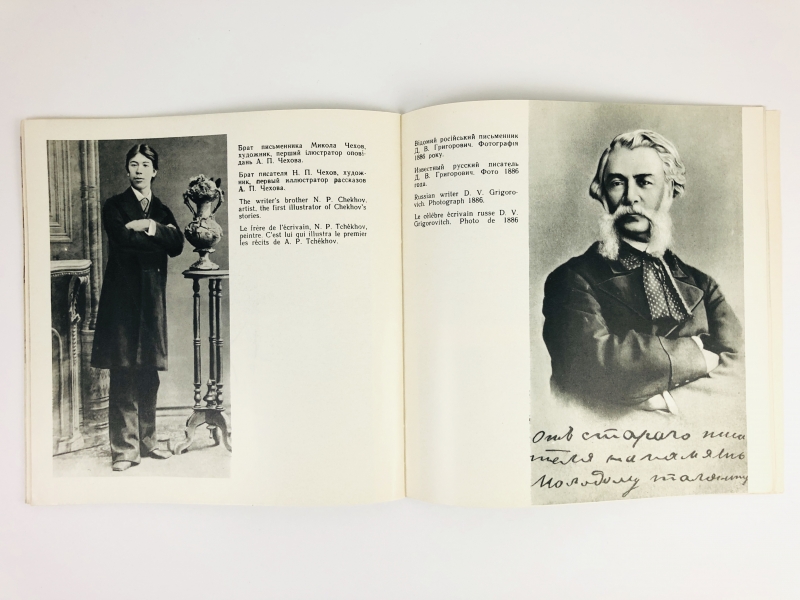 Брат письменника Микола Чехов,
художник, перший ілюстратор опові-
дань А. П. Чехова.
Брат писателя Н. П. Чехов, худож-
ник, первый иллюстратор рассказов
А. П. Чехова.
The writer's brother N. P. Chekhov,
artist, the first illustrator of Chekhov's
stories.
Le frère de l'écrivain, N. P. Tchékhov,
peintre. C'est lui qui illustra le premier
les récits de A. P. Tchékhov.
Відомий російський письменник
Д. В. Григорович. Фотографія
1886 року.
Известный русский писатель
Д. В. Григорович. Фото 1886
года.
Russian writer D. V. Grigoro-
vich. Photograph 1886.
Le célèbre écrivain russe D. V.
Grigorovitch. Photo de 1886
Отъ стараго писа
теля на память
молодому таланту